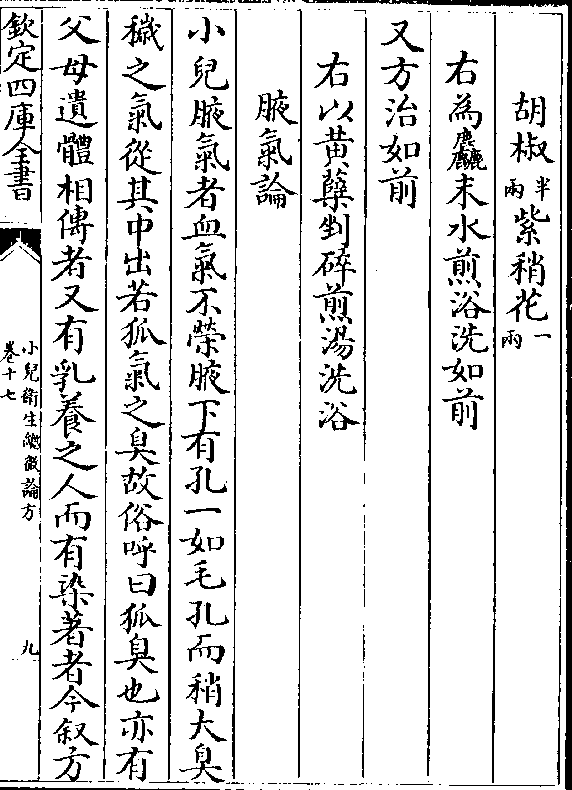 胡椒半兩紫稍花一兩
右為麤末水煎浴洗如前
又方治如前
右以黃蘗剉碎煎湯洗浴
腋氣論
小兒腋氣者血氣不榮腋下有孔一如毛孔而稍大臭
穢之氣從其中出若狐氣之臭故俗呼曰狐臭也亦有
父母遺體相傳者又有乳養之人而有染著者今叙方
欽定四庫全書
小兒衛生總微論方
卷十七
九